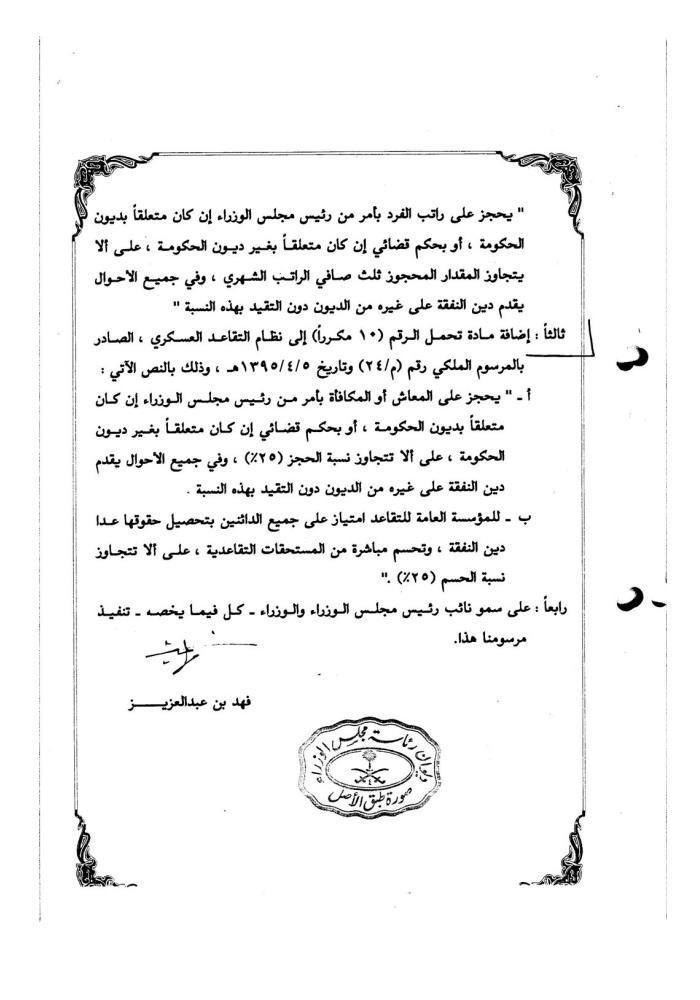 " يحجز على راتب الفرد بأمر من رئيس مجلس الوزراء إن كان متعلقاً بديون
الحكومة ، أو بحكم قضائي إن كان متعلقـاً بغير ديـون الحكومـة ، على ألا
يتجاوز المقدار المحجوز ثلث صافي الراتب الشهري ، وفي جميع الأحوال
يقدم دين النفقة على غيره من الديون دون التقيد بهذه النسبة "
ثالثاً : إضافة مادة تحمل الرقم (١٠ مكرراً) إلى نظام التقاعد العسكري ، الصادر
بالمرسوم الملكي رقم (م/٢٤) وتاريخ ١٣٩٥/٤/٥هـ ، وذلك بالنص الآتي :
أ ـ " يحجز على المعاش أو المكافأة بأمر مـن رئـيس مجلـس الـوزراء إن كـان
متعلقاً بديون الحكومـة ، أو بحكـم قضائي إن كـان متعلقـاً بغـير ديـون
الحكومة ، على ألا تتجاوز نسبة الحجز (٢٥٪) ، وفي جميع الأحوال يقدم
دين النفقة على غيره من الديون دون التقيد بهذه النسبة .
ب ـ للمؤسسة العامة للتقاعد امتياز على جميع الدائنين بتحصيل حقوقها عـدا
دين النفقة ، وتحسم مباشرة من المستحقات التقاعدية ، على ألا تتجـاوز
نسبة الحسم (٢٥٪) ."
رابعاً : على سمو نائب رئيس مجلس الوزراء والوزراء ـ كـل فيمـا يخصـه ـ تنفيـذ
مرسومنا هذا.
فهد بن عبدالعزيـــــز
ديوان رئاسة مجلس الوزراء
صورة طبق الأصل